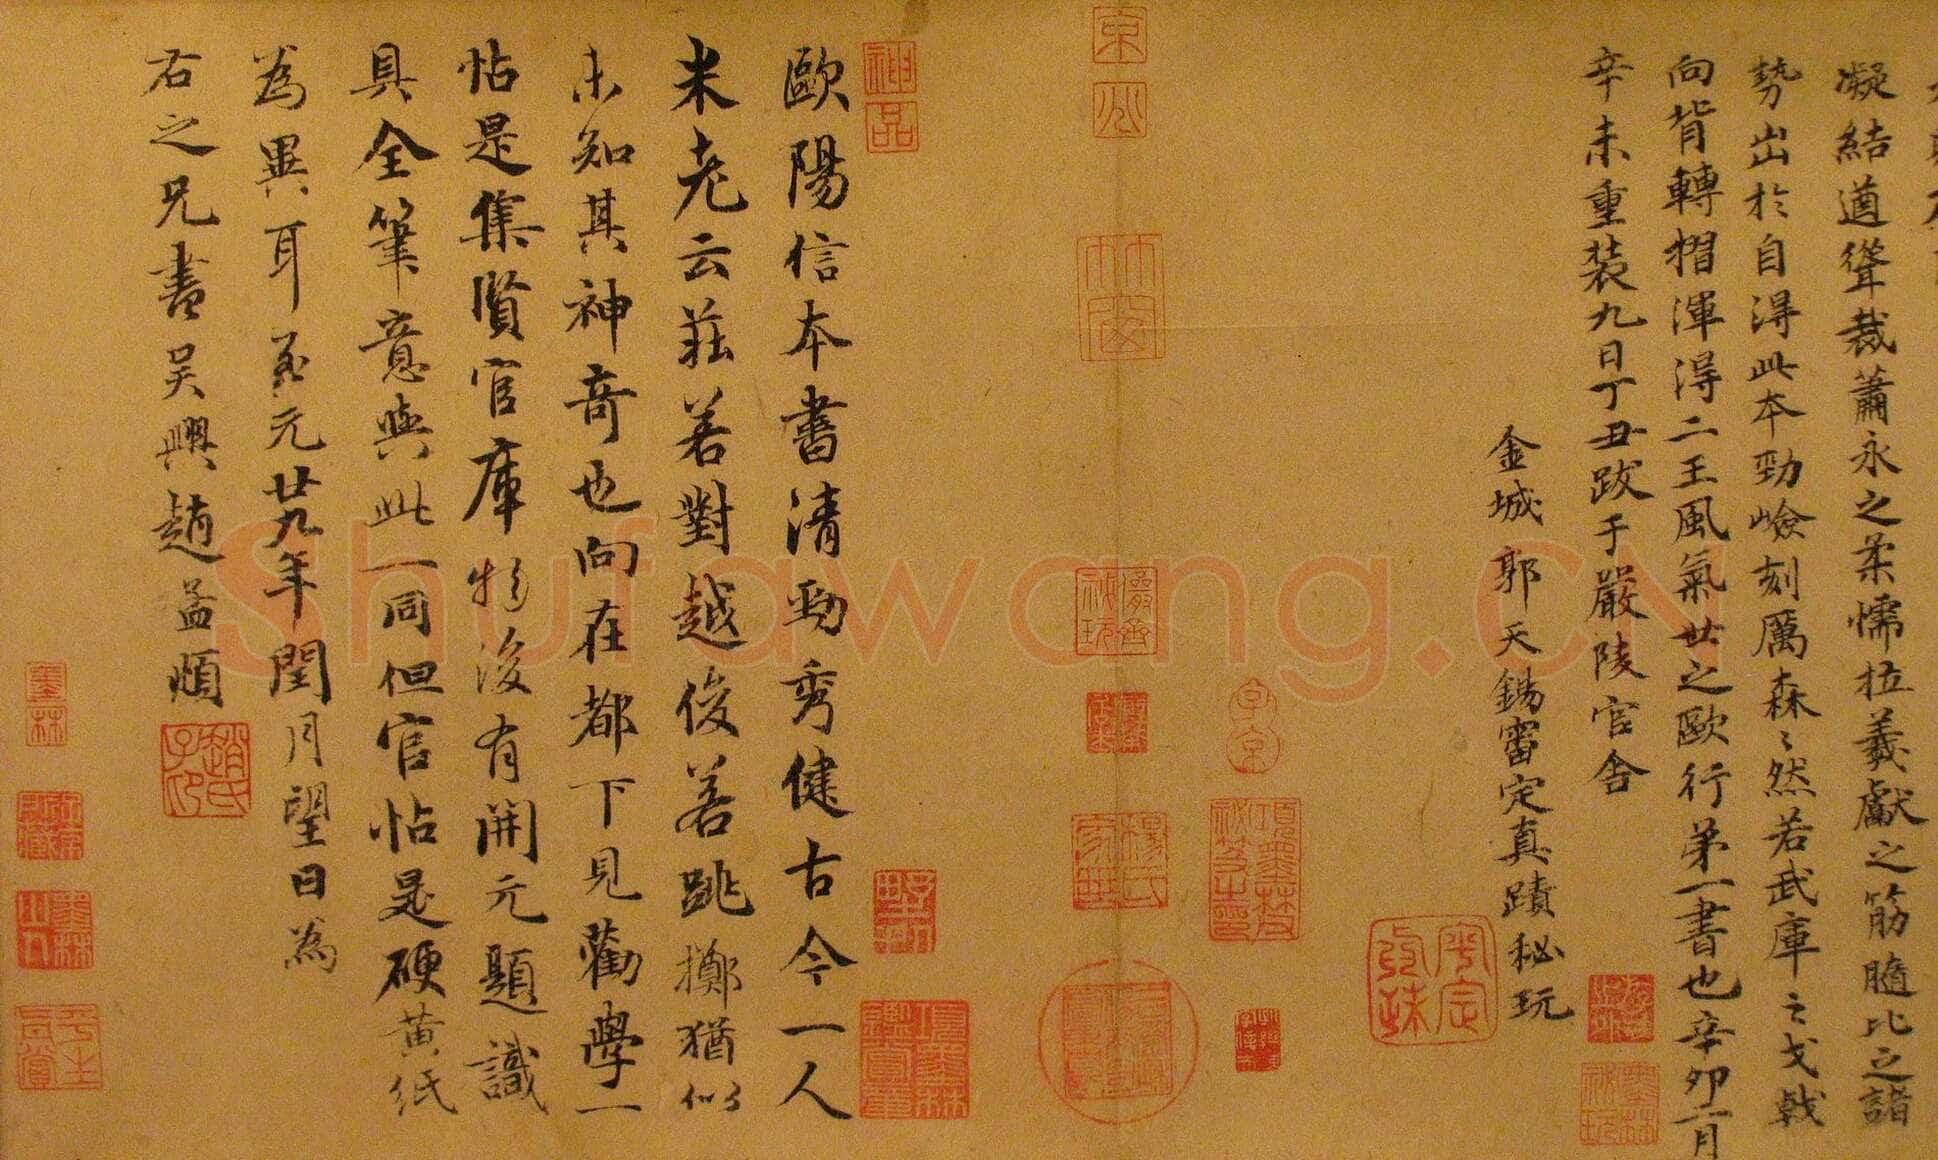 凝結遒聳裁蕭永之柔懦拉羲獻之筋髓比之諸
勢出於自得此本勁嶮刻厲森〻然若武庫之戈戟
向背轉摺渾得二王風氣世之歐行第一書也辛卯二月
辛未重裝九日丁丑跋于嚴陵官舍
金城郭天錫審定真蹟秘玩
神品
歐陽信本書清勁秀健古今一人
米老云莊若對越俊若跳擲猶似
未知其神奇也向在都下見勸學一
帖是集賢官庫物後有開元題識
具全筆意與此一同但官帖是硬黃紙
為異耳至元廿九年閏月望日為
右之兄書吳興趙孟頫
趙氏子印
子京
墨林
Shufawang.CN